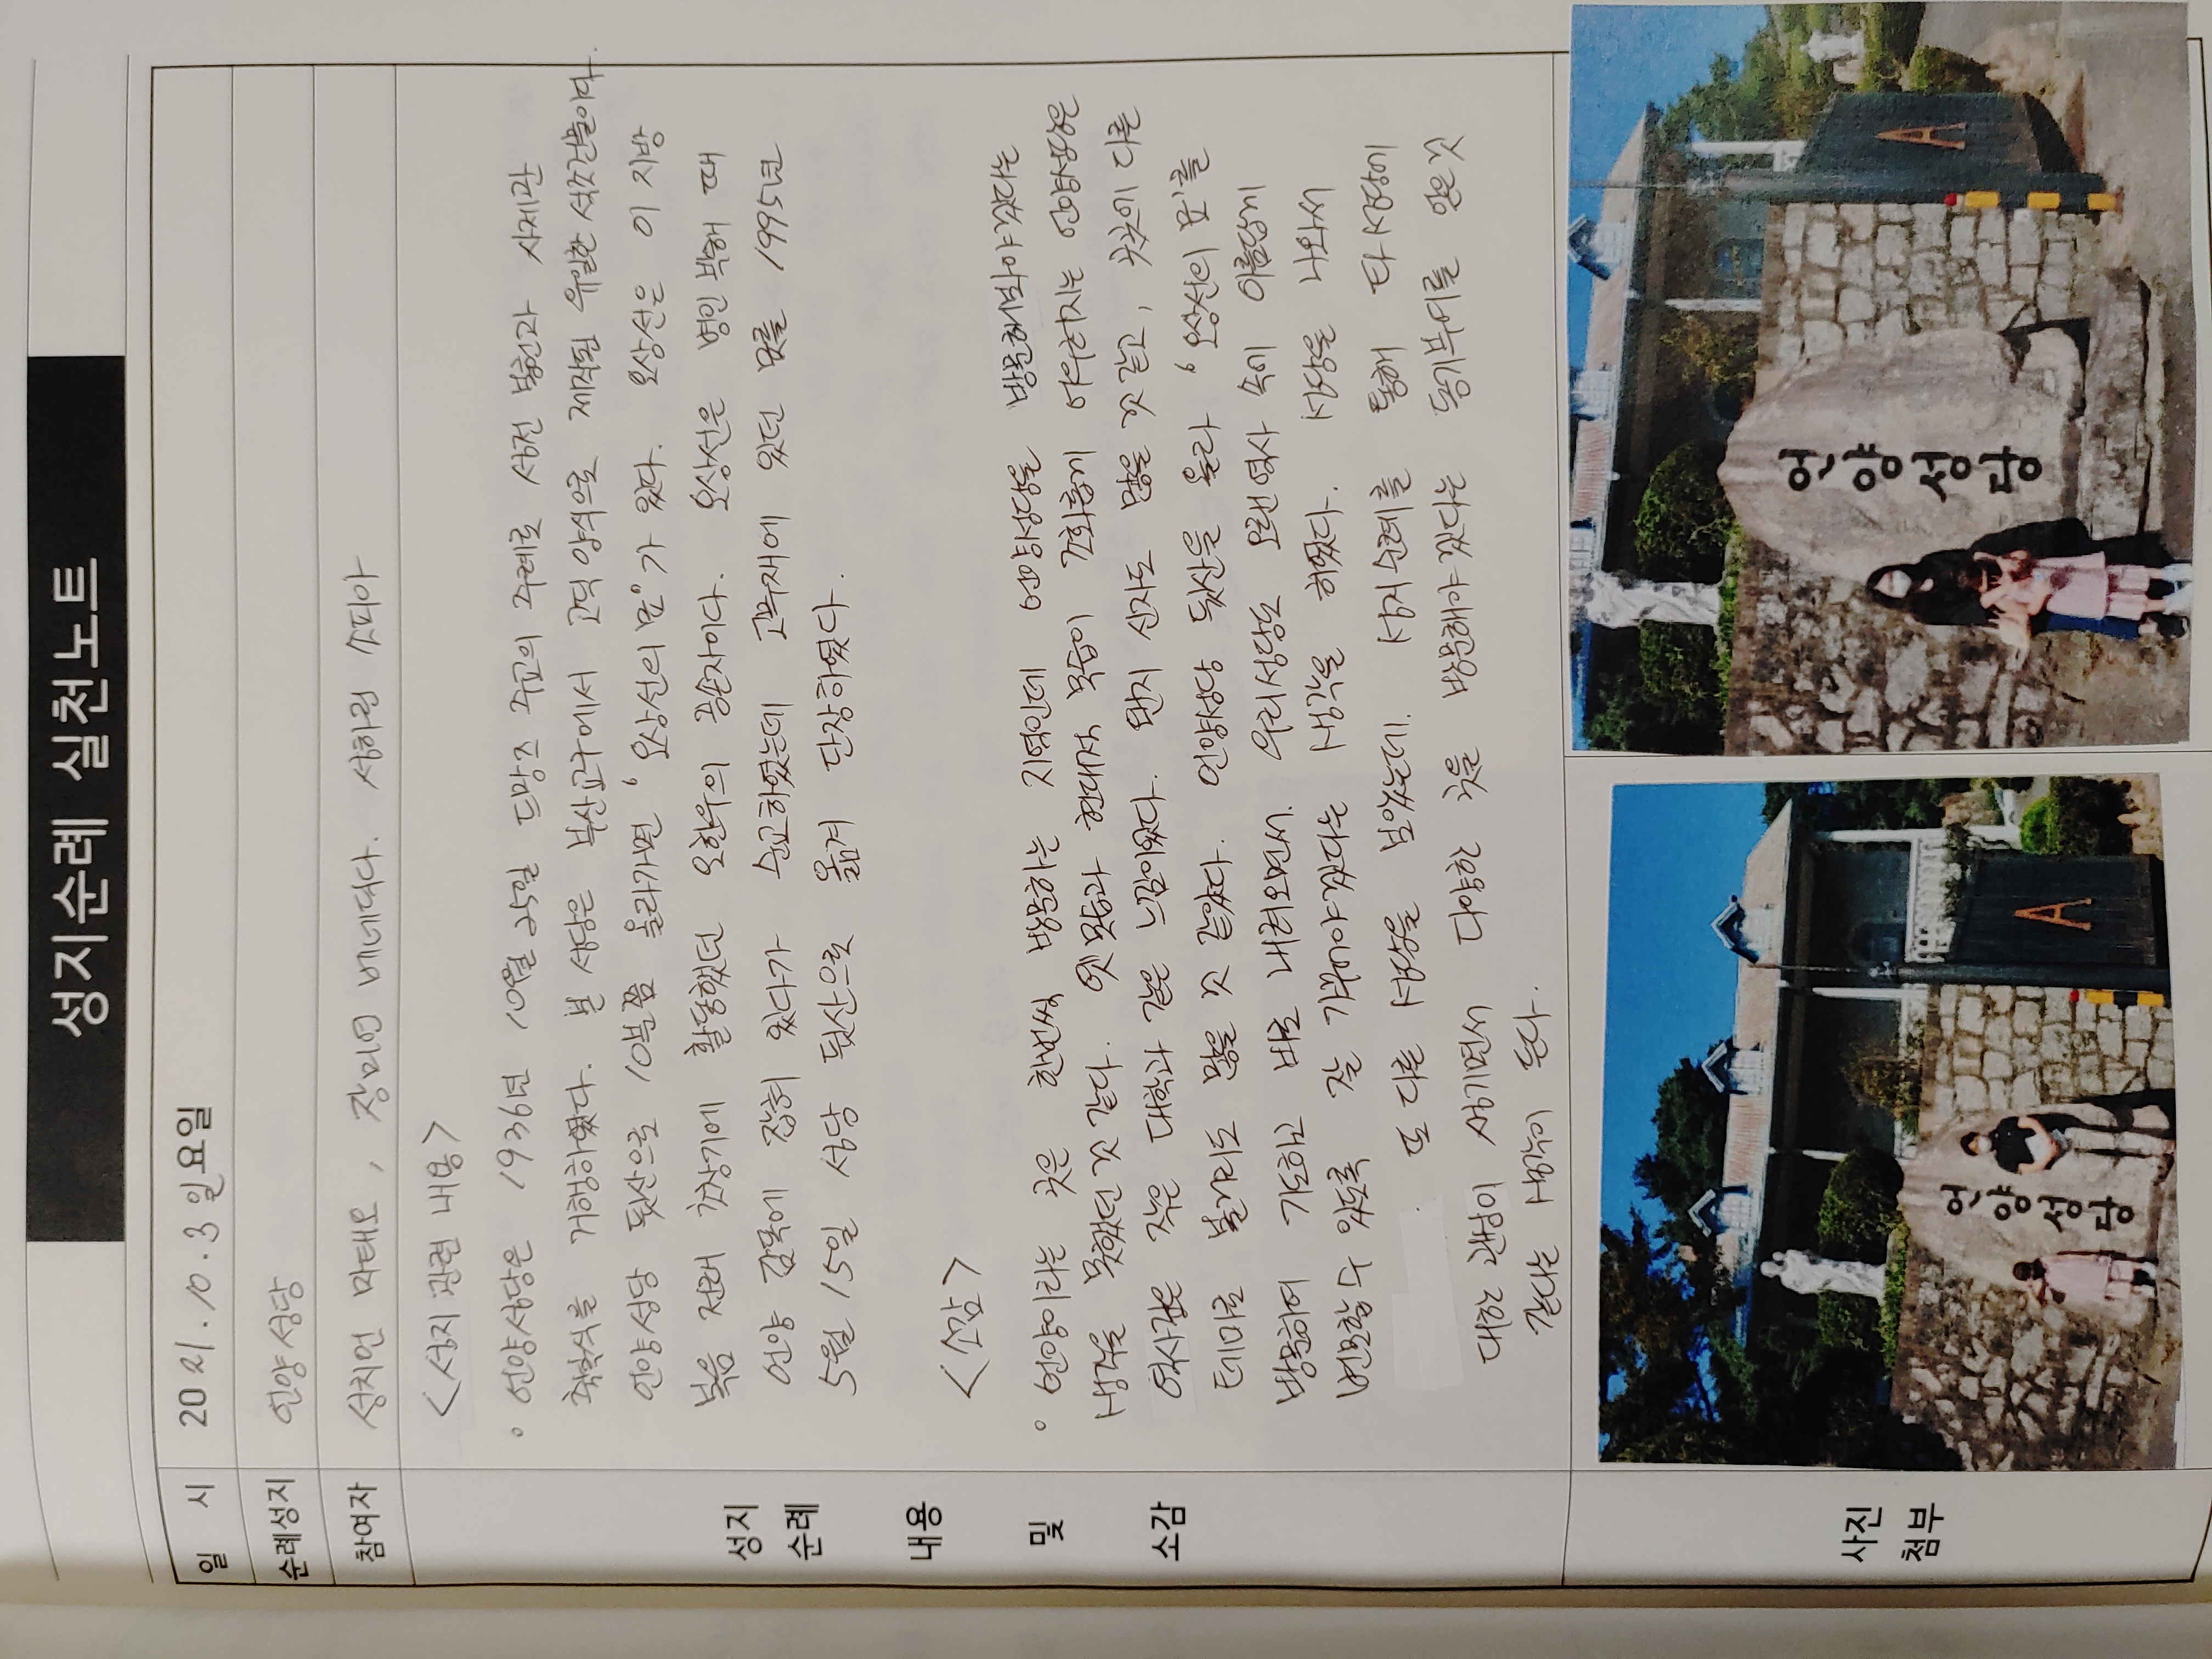 성지순례 실천노트
일 시 2021. 10. 3 일요일
순례성지 언양성당
참여자 성치언 마태오, 장미연 베네딕다. 성하린 소피아
성지 순례 내용 및 소감
<성지 관련 내용>
° 언양성당은 1936년 10월 25일 드망즈 주교의 주례로 성전 봉헌과 사제관
축복식을 거행하였다. 본 성당은 부산교구에서 고딕 양식으로 제작된 유일한 석조건물이다.
언양성당 뒷산으로 10분쯤 올라가면 '오상선의 묘'가 있다. 오상선은 이 지방
복음 전래 초창기에 활동했던 오한우의 종손자이다. 오상선은 병인박해 때
언양 감옥에 갇혀 있다가 순교하였는데 고무재에 있던 묘를 1995년
5월 15일 성당 뒷산으로 옮겨 단장하였다.
<소감>
° 언양이라는 곳은 한번씩 방문하는 지역인데 언양성당을 방문해봐야겠다는
생각을 못했던 것 같다. 옛모습과 현대적 모습이 조화롭게 어우러지는 언양성당은
역사깊은 작은 대학과 같은 느낌이었다. 왠지 신자도 많을 것 같고, 곳곳이 다른
테마로 볼거리도 많을 것 같았다. 언양성당 뒷산을 올라 '오상선의 묘'를
방문하여 기도하고 바로 내려오면서. 우리성당도 오랜 역사 속에 아름답게
변모할 수 있도록 잘 가꾸어야겠다는 생각을 하였다. 성당을 나와서
또 다른 성당을 보았는데. 성지순례를 통해 타 성당에
대한 관심이 생기면서 다양한 곳을 방문해야겠다는 동기부여를 얻은것
같다는 생각이 든다.
사진 첨부
언양성당
A
언양성당
A